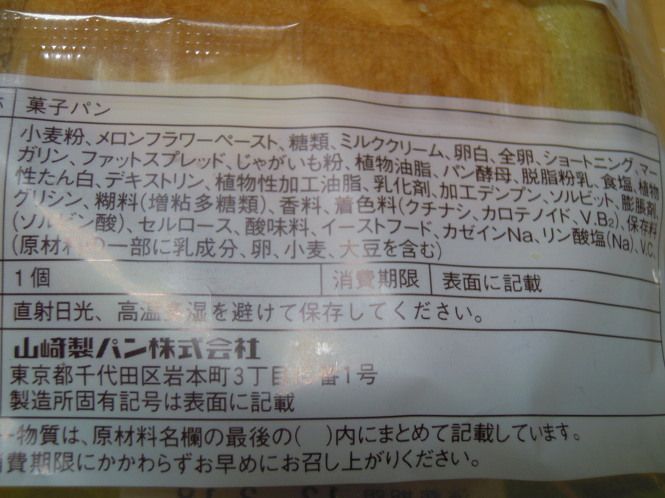 菓子パン
小麦粉、メロンフラワーペースト、糖類、ミルククリーム、卵白、全卵、ショートニング、マー
ガリン、ファットスプレッド、じゃがいも粉、植物油脂、パン酵母、脱脂粉乳、食塩、植物
性たん白、デキストリン、植物性加工油脂、乳化剤、加工デンプン、ソルビット、膨脹剤、
グリシン、糊料(増粘多糖類)、香料、着色料(クチナシ、カロテノイド、V.B₂)、保存料
(ソルビン酸)、セルロース、酸味料、イーストフード、カゼインNa、リン酸塩(Na)、V.C、
(原材料の一部に乳成分、卵、小麦、大豆を含む)
1個 消費期限 表面に記載
直射日光、高温多湿を避けて保存してください。
山崎製パン株式会社
東京都千代田区岩本町3丁目 番1号
製造所固有記号は表面に記載
物質は、原材料名欄の最後の( )内にまとめて記載しています。
消費期限にかかわらずお早めにお召し上がりください。